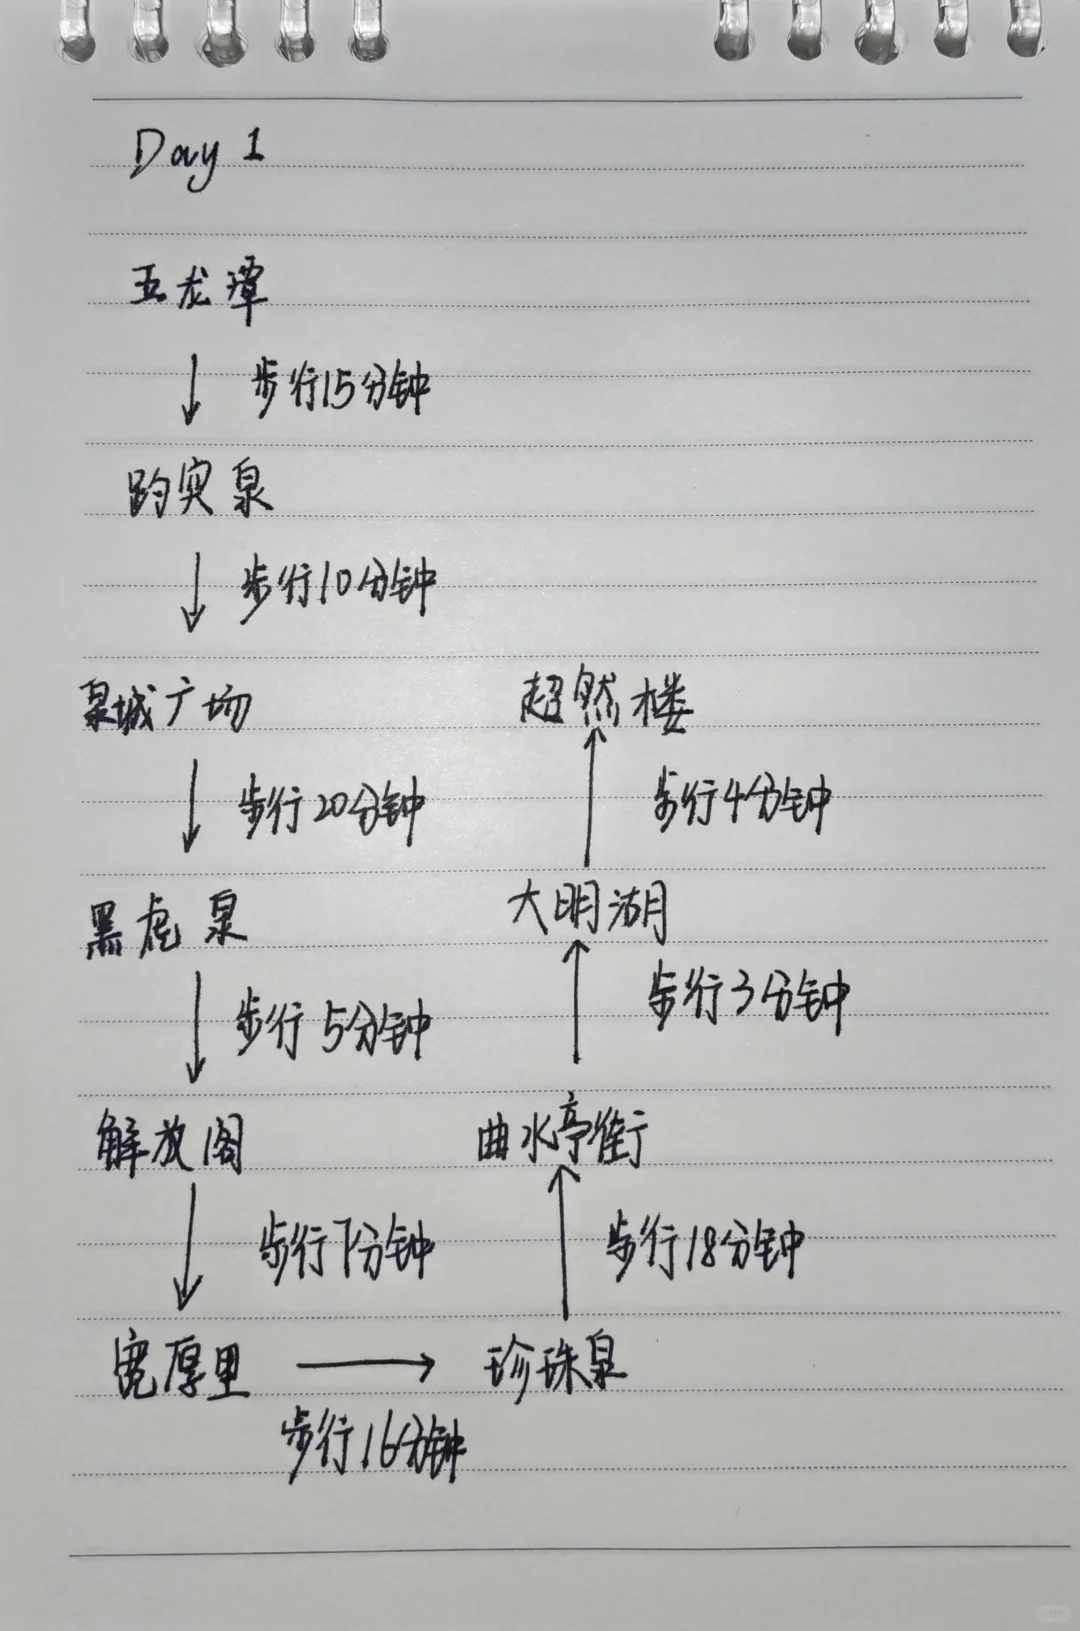 Day 1
五龙潭
步行15分钟
趵突泉
步行10分钟
泉城广场
步行20分钟
黑虎泉
步行5分钟
解放阁
步行7分钟
宽厚里
步行16分钟
珍珠泉
步行18分钟
曲水亭街
步行3分钟
大明湖
步行4分钟
超然楼